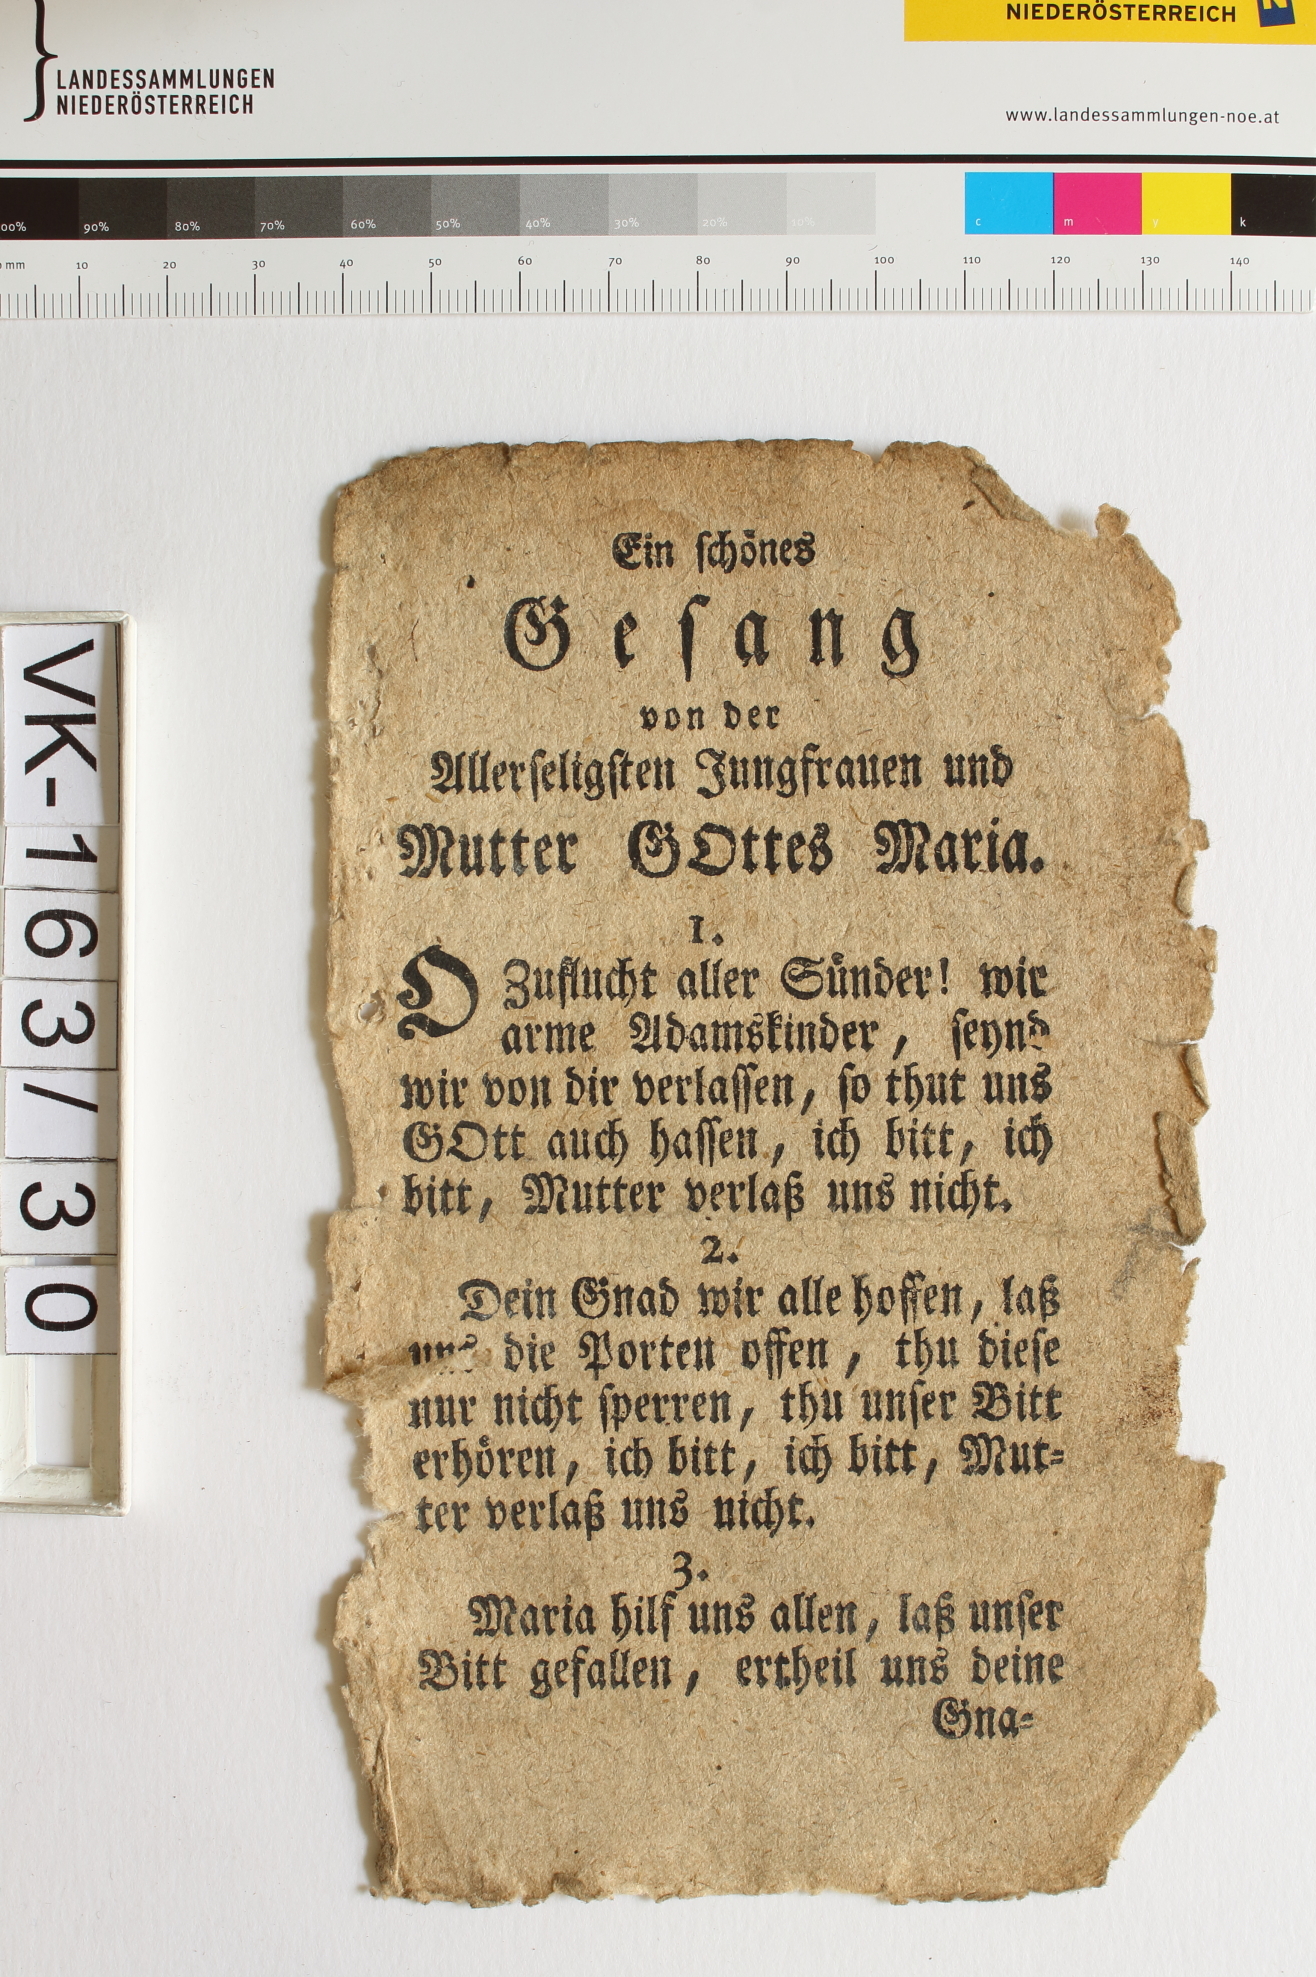 NIEDERÖSTERREICH
LANDESSAMMLUNGEN
NIEDERÖSTERREICH
www.landessammlungen-noe.at
00% 90% 80% 70% 60% 50% 40% 30% 20% 10% c m y k
mm 10 20 30 40 50 60 70 80 90 100 110 120 130 140
VK-163/30
Ein schönes
Gesang
von der
Allerseligsten Jungfrauen und
Mutter GOttes Maria.
1.
O Zuflucht aller Sünder! wir
arme Adamskinder, seynd
wir von dir verlassen, so thut uns
GOtt auch hassen, ich bitt, ich
bitt, Mutter verlaß uns nicht.
2.
Dein Gnad wir alle hoffen, laß
uns die Porten offen, thu diese
nur nicht sperren, thu unser Bitt
erhören, ich bitt, ich bitt, Mut=
ter verlaß uns nicht.
3.
Maria hilf uns allen, laß unser
Bitt gefallen, ertheil uns deine
Gna=